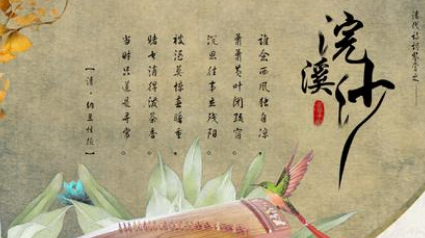 清代诗词鉴赏之——
浣溪沙
谁念西风独自凉。
萧萧黄叶闭疏窗。
沉思往事立残阳。
被酒莫惊春睡重。
赌书消得泼茶香。
当时只道是寻常。
【清·纳兰性德】